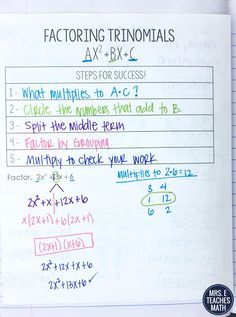 FACTORING TRINOMIALS
AX² + BX + C
STEPS FOR SUCCESS!
1 - What multiplies to A·C?
2 - Circle the numbers that add to B.
3 - Split the middle term
4 - Factor by Grouping
5 - Multiply to check your work
Factor. 2x² + 13x + 6
multiplies to 2·6=12
2x²+x+12x+6
3 4
1 12
6 2
x(2x+1)+6(2x+1)
(2x+1)(x+6)
2x²+12x+x+6
2x²+13x+6 ✓
MRS. E
TEACHES
MATH